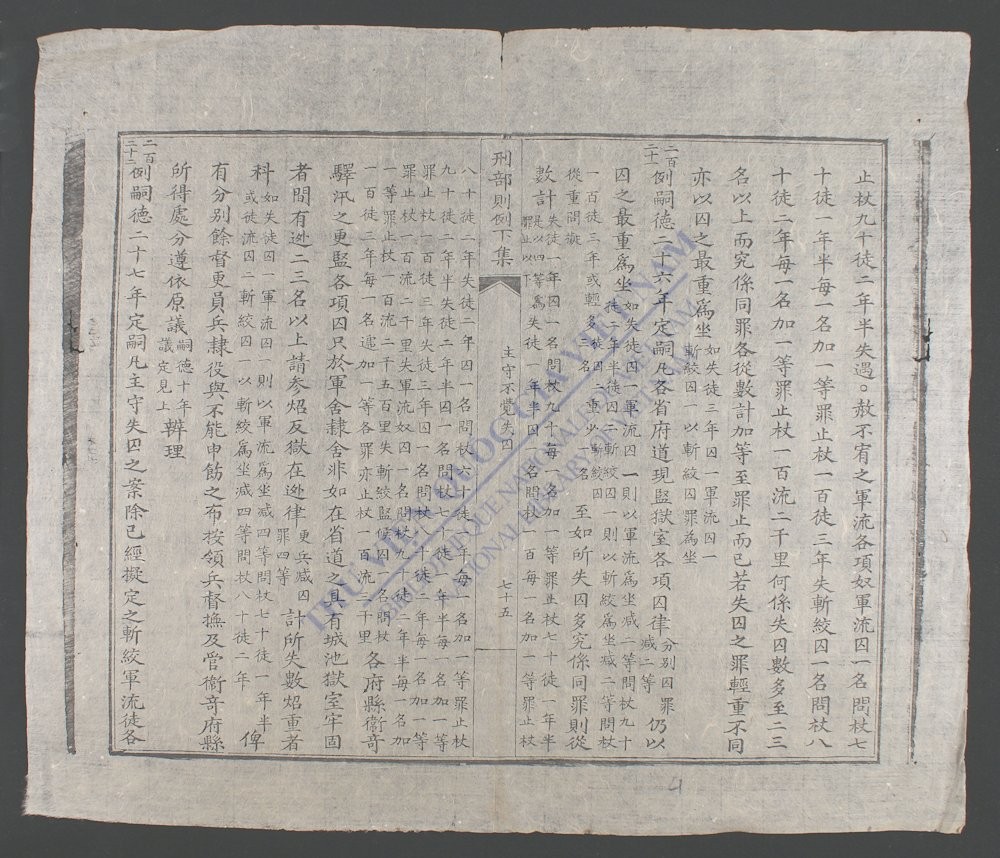 止杖九十徒二年半失遇。赦不宥之軍流各項奴軍流囚一名問杖七
十徒一年半每一名加一等罪止杖一百徒三年失斬絞囚一名問杖八
十徒二年每一名加一等罪止杖一百流二千里何係失囚數多至二三
名以上而究係同罪各從數計加等至罪止而已若失囚之罪輕重不同
亦以囚之最重為坐
如失徒三年囚一軍流囚一
斬絞囚一以斬絞囚罪為坐
二百
二十一
例嗣德二十六年定嗣凡各省府道現監獄室各項囚律
分別囚罪
減二等
仍以
囚之最重為坐
如失徒囚一軍流囚一則以軍流為坐減二等問杖九十
徒二年半徒囚二斬絞囚一則以斬絞為坐減二等問杖
一百徒三年或輕
囚二三名重
囚少一名
從重問擬
至如所失囚多究係同罪則從
數計
失徒一年囚一名問杖九十每一名加一等罪止杖七十徒一年半
是以四等為
罪止以下
失徒一年半囚一名問杖一百每一名加一等罪止杖
刑部則例下集
主守不覺失囚
七十五
八十徒二年失徒二年囚一名問杖六十徒一年每一名加一等罪止杖
九十徒二年半失徒二年半囚一名問杖七十徒一年半每一名加一等
罪止杖一百徒三年失徒三年囚一名問杖八十徒二年每一名加一等
罪止杖一百流二千里失軍流奴囚一名問杖九十徒二年半每一名加
一等罪止杖一百流二千五百里失斬絞監候囚一名問杖
一百徒三年每一名遞加一等各罪亦止杖一百流三千里
各府縣衛奇
驛汛之更監各項囚只於軍舍隸舍非如在省道之具有城池獄室牢固
者間有迯二三名以上請参炤反獄在迯律
更兵減囚
罪四等
計所失數炤重者
科
如失徒囚一軍流囚一則以軍流為坐減四等問杖七十徒一年半
或徒流囚二斬絞囚一以斬絞為坐減四等問杖八十徒二年
俾
有分别餘督更員兵隸役與不能申飭之布按領兵督撫及管衛竒府縣
所得處分遵依原議
嗣德十年
議定見上
辨理
二百
二十二
例嗣德二十七年定嗣凡主守失囚之案除已經擬定之斬絞軍流徒各
THƯ VIỆN QUỐC GIA VIỆT NAM
BIBLIOTHEQUE NATIONALE DU VIETNAM
NATIONAL LIBRARY OF VIETNAM